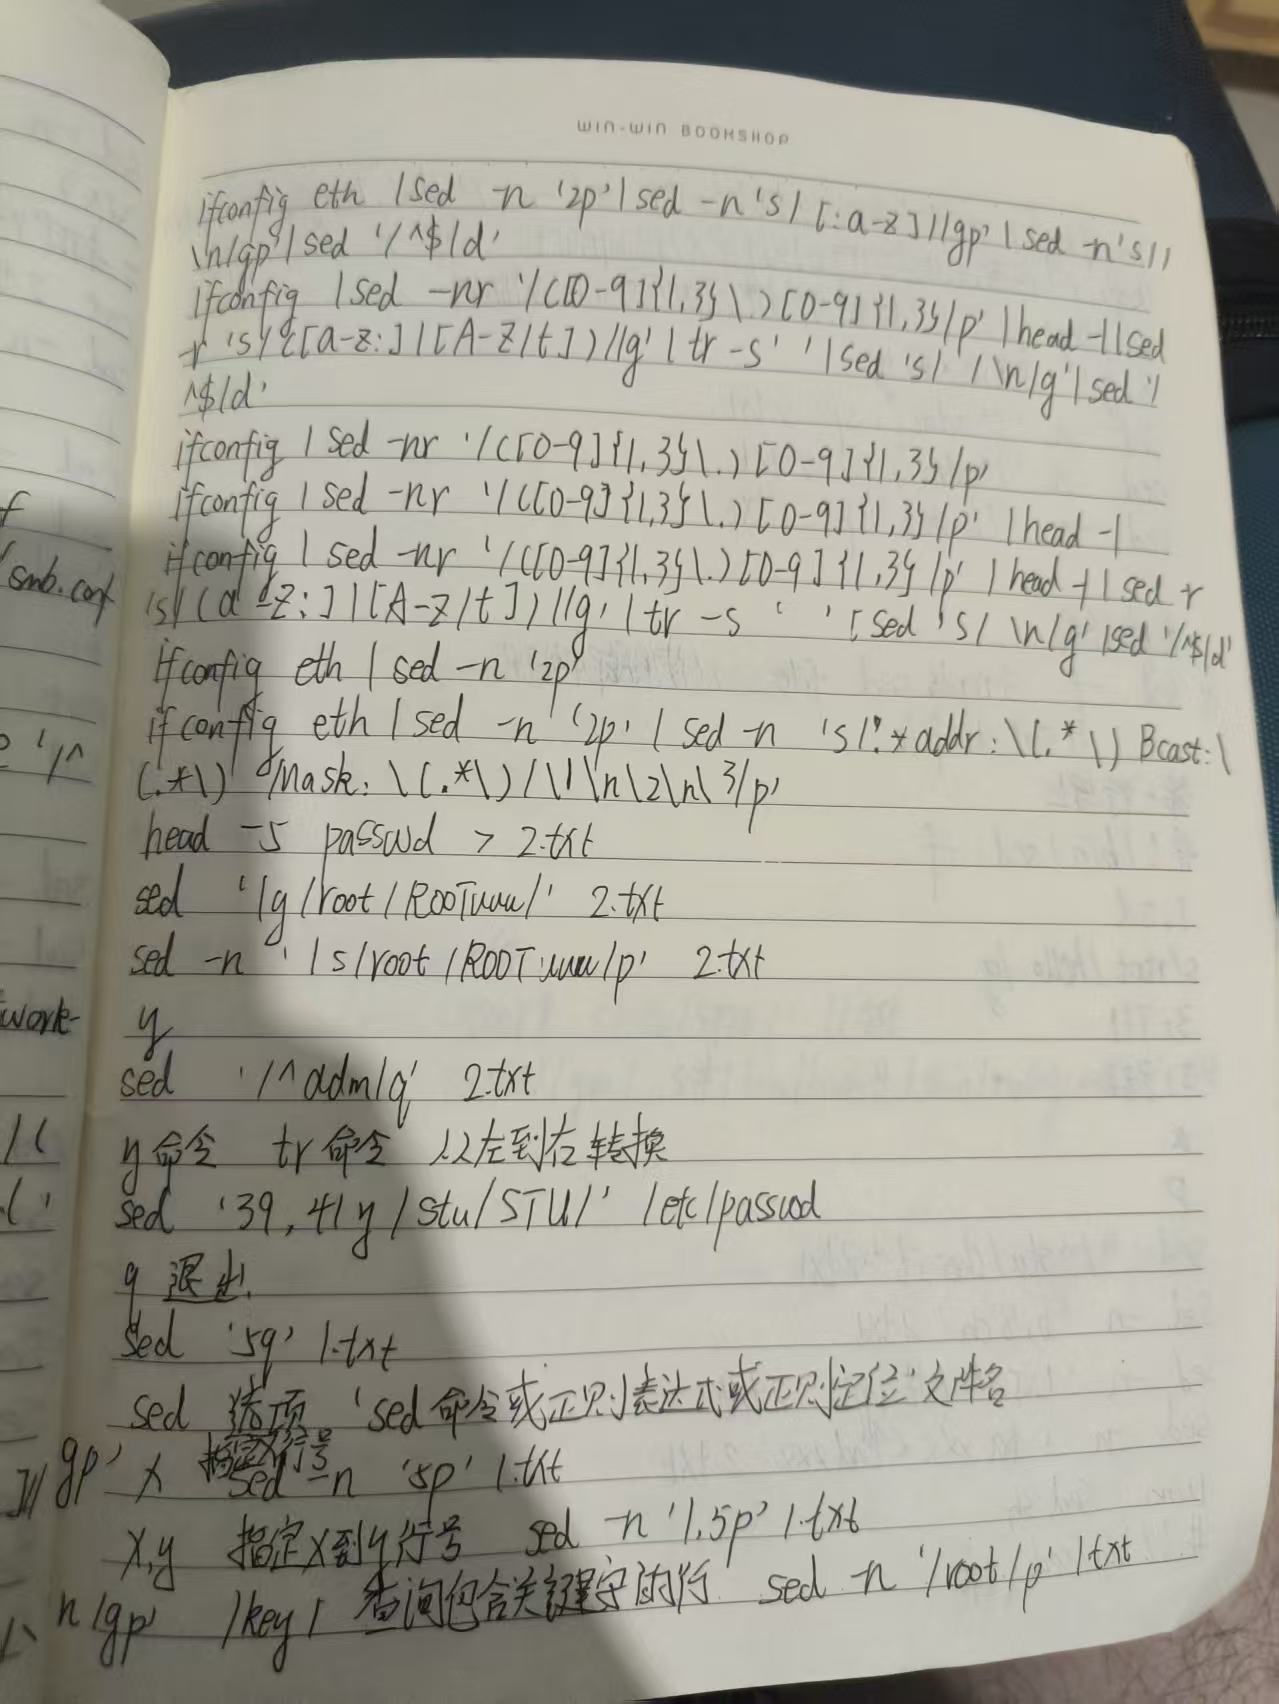 WIN-WIN BOOKSHOP
ifconfig eth | sed -n '2p' | sed -n 's/[:a-z]//gp' | sed -n 's//
\n/gp' | sed '/^$/d'
ifconfig | sed -nr '/([0-9]{1,3}\.)[0-9]{1,3}/p' | head -1 | sed
-r 's/([a-z:]|[A-Z/t])//g' | tr -s ' ' | sed 's/ /\n/g' | sed '/
^$/d'
ifconfig | sed -nr '/([0-9]{1,3}\.)[0-9]{1,3}/p'
ifconfig | sed -nr '/([0-9]{1,3}\.)[0-9]{1,3}/p' | head -1
ifconfig | sed -nr '/([0-9]{1,3}\.)[0-9]{1,3}/p' | head -1 | sed r
's/(a-z:]|[A-Z/t])//g' | tr -s ' ' [sed 's/ \n/g' |sed '/^$/d'
ifconfig eth | sed -n '2p'
ifconfig eth | sed -n '2p' | sed -n 's/.*addr:\(.*\) Bcast:\
(.*\) Mask:\(.*\)/\1\n\2\n\3/p'
head -5 passwd > 2.txt
sed '/g/root/ROOTuuu/' 2.txt
sed -n '/s/root/ROOTuuu/p' 2.txt
y
sed '/^adm/q' 2.txt
y命令 tr命令 从左到右转换
sed '39,41y/stu/STU/' /etc/passwd
q 退出
sed '5q' 1.txt
sed 选项 'sed命令或正则表达式或正则定位' 文件名
x 指定x行号
sed -n '5p' 1.txt
x,y 指定x到y行号 sed -n '1,5p' 1.txt
/key/ 查询包含关键字的行 sed -n '/root/p' 1txt
f
smb.conf
'/^
work-
/(
.('
gp'
n/gp'